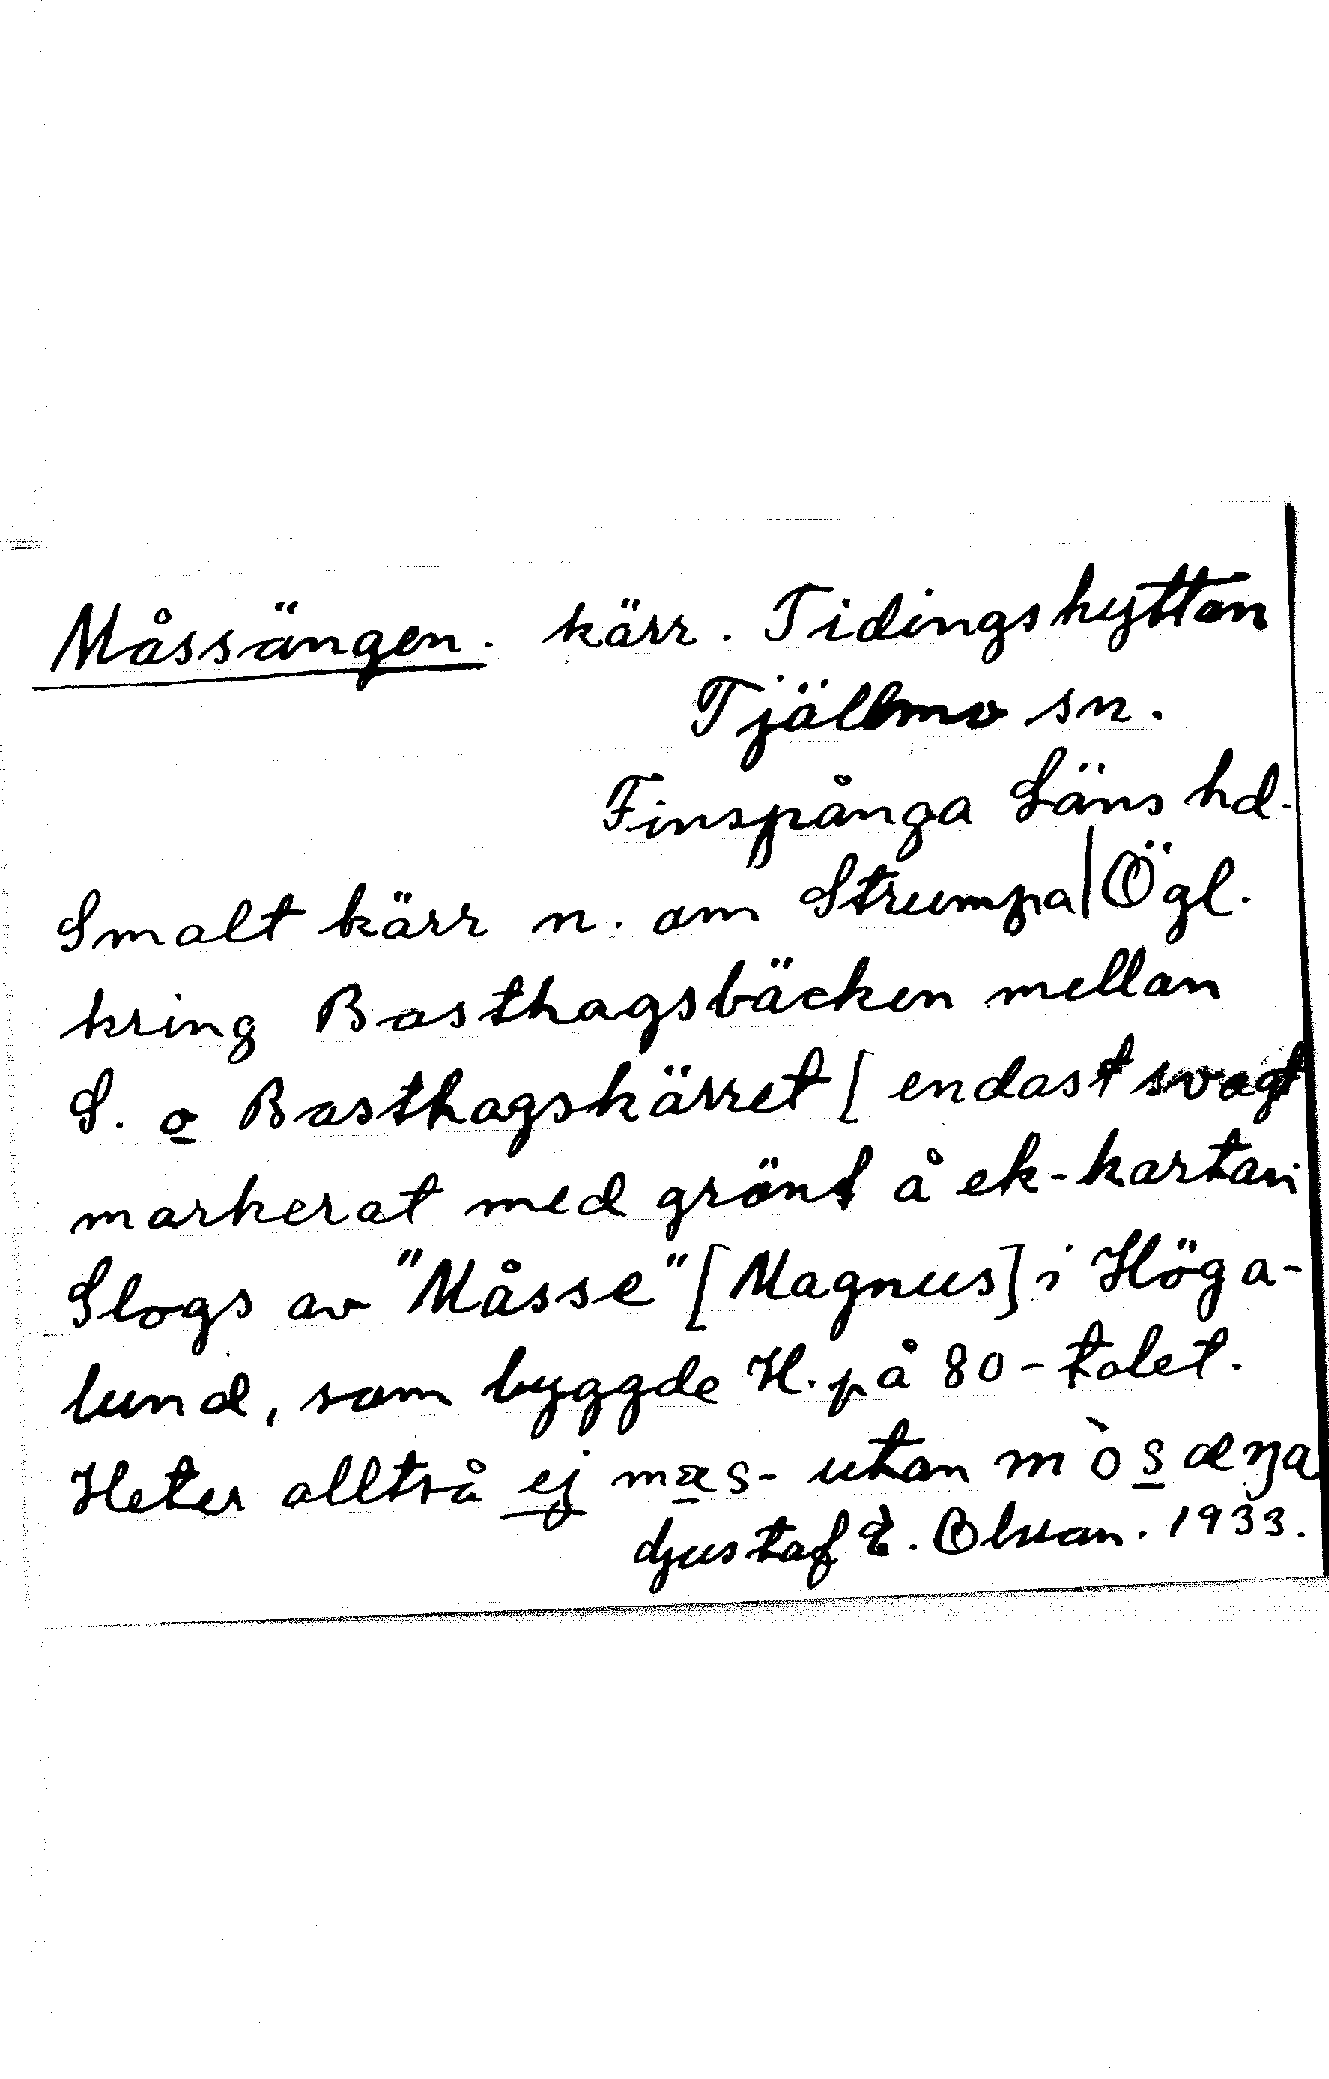 Måssängen. kärr. Tidingshyttan
Tjällmo sn.
Finspånga Läns hd.
Smalt kärr n. om Strumpa| Ögl.
kring Basthagsbäcken mellan
S. o Basthagskärret [endast svagt
markerat med grönt å ek-kartan
Slogs av "Måsse" [Magnus] i Höga-
lund, som byggde H. på 80-talet.
Heter alltså ej mæs- utan mòsæŋa
Gustaf E. Olsson. 1933.